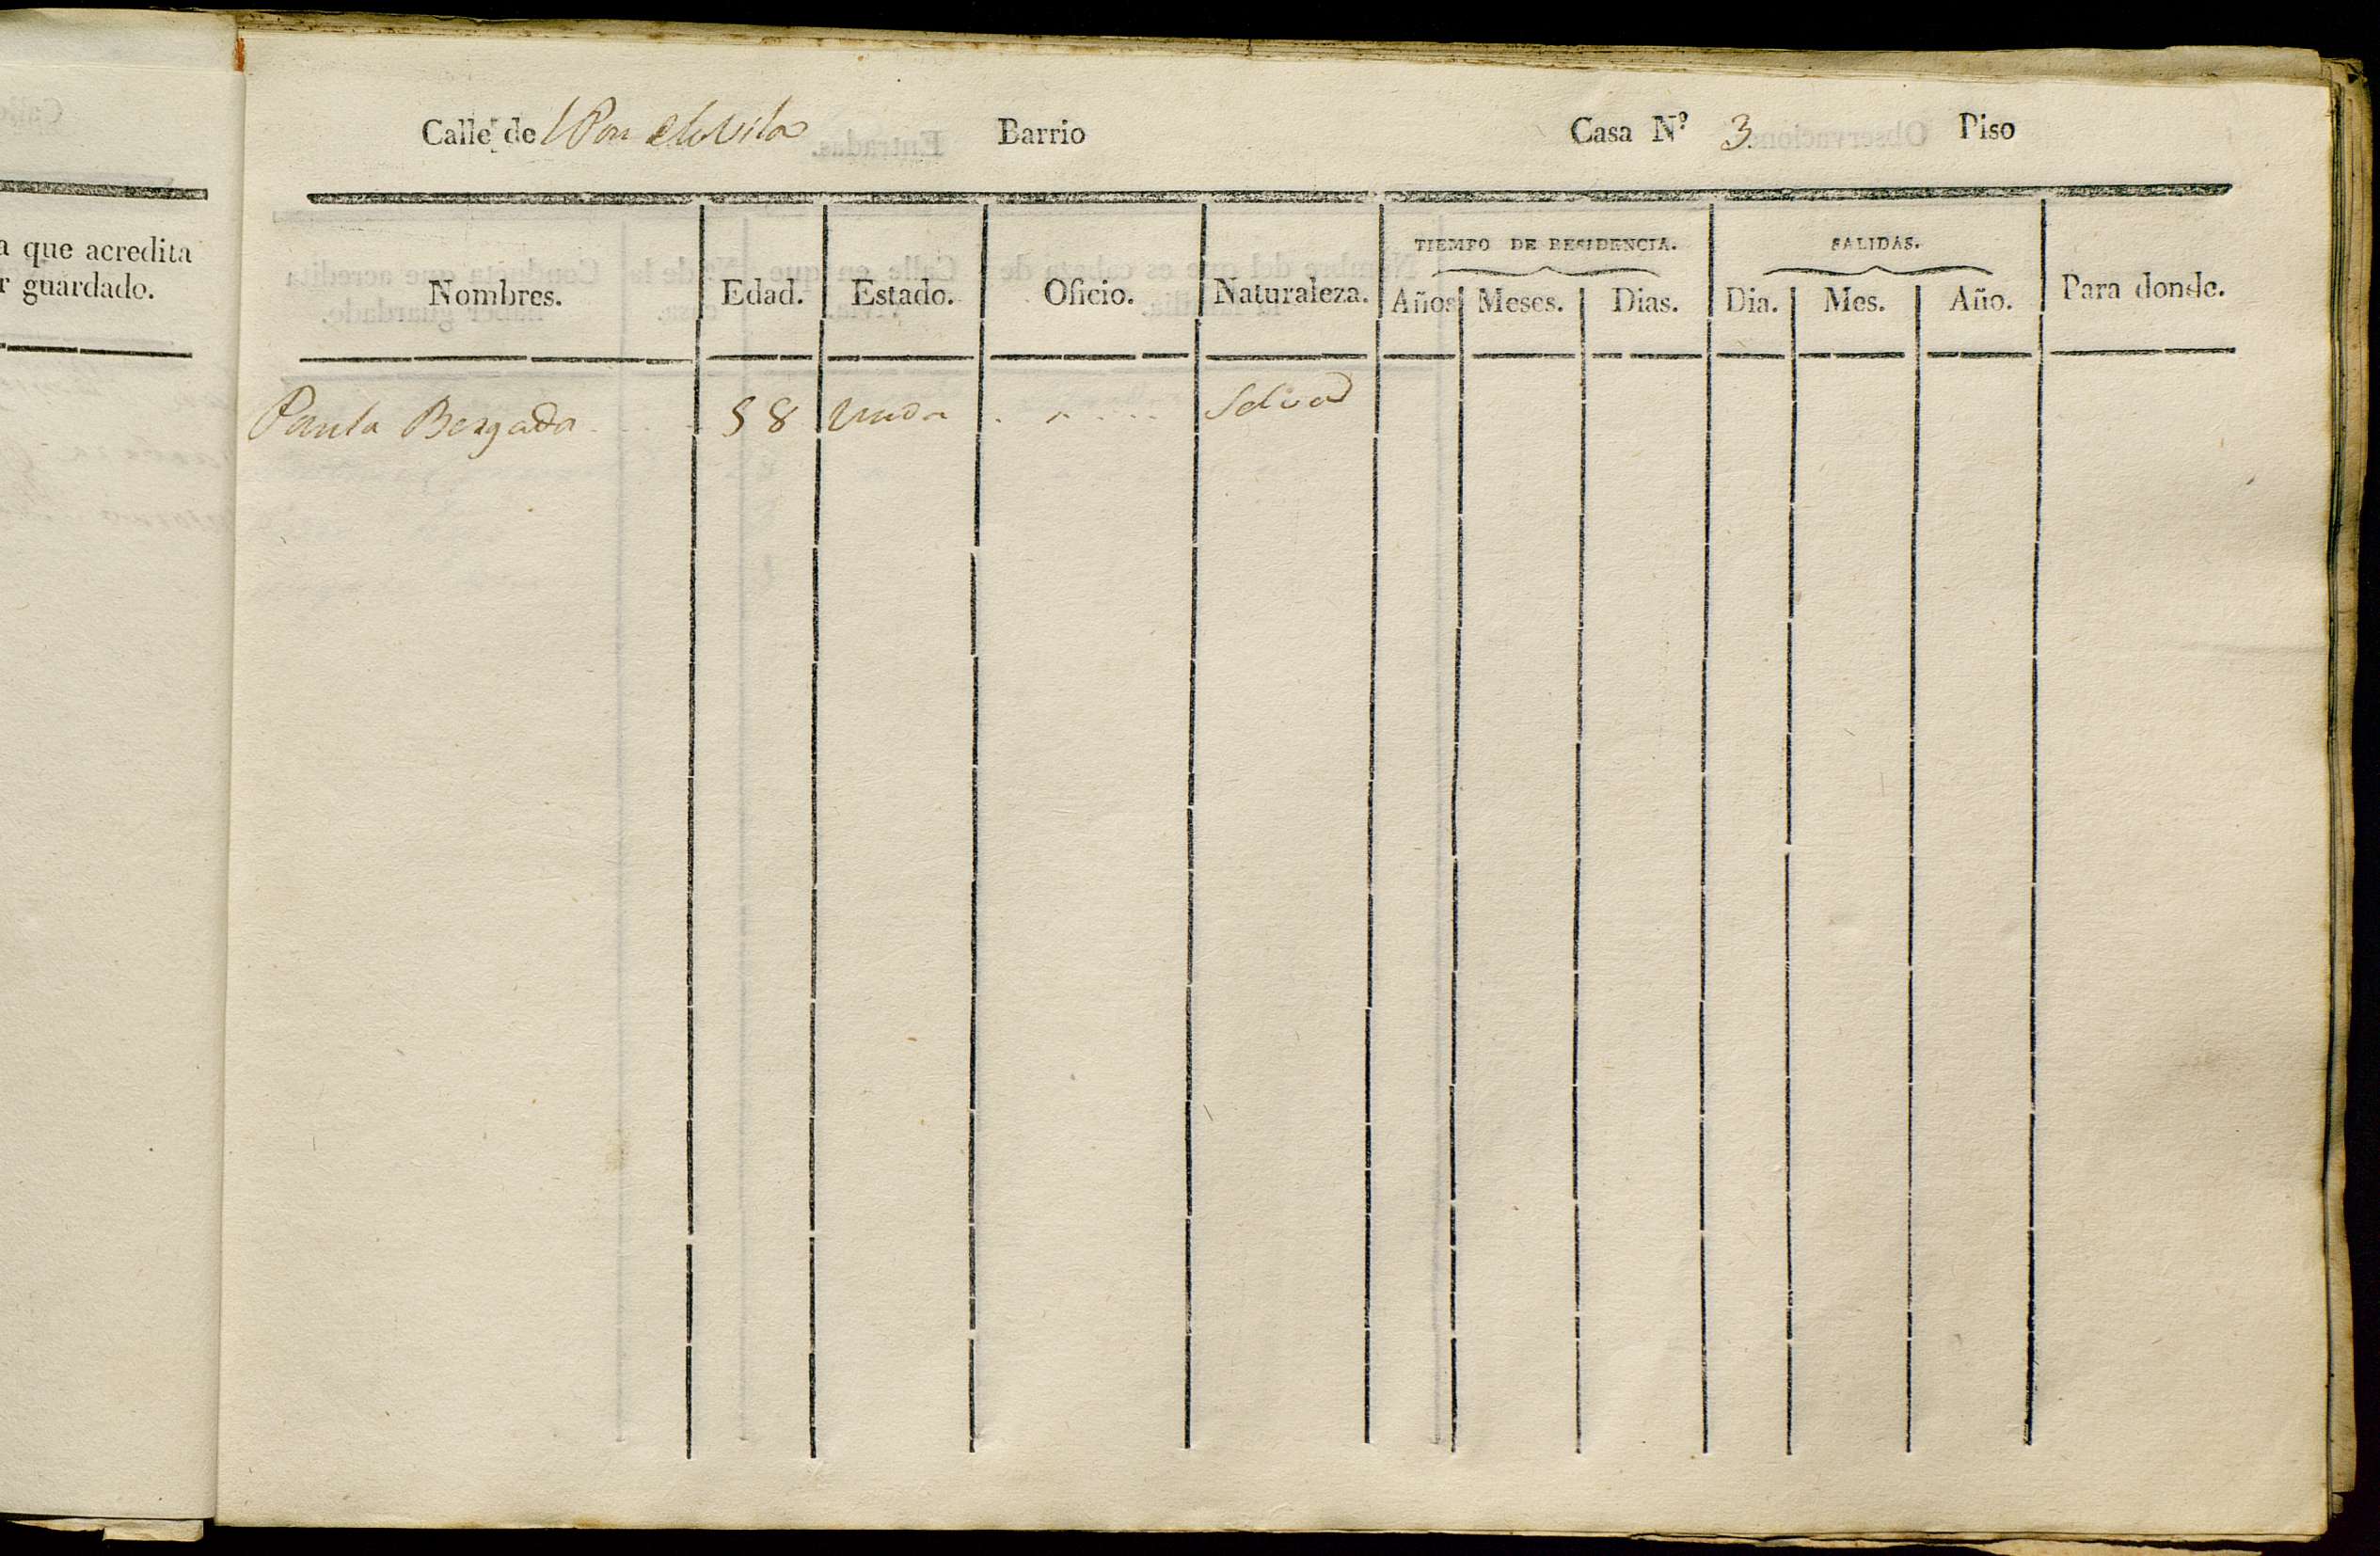 a que acredita
r guardado.
Calle de Barrio Casa Nº 3 Piso
TIEMPO DE RESIDENCIA. SALIDAS.
Nombres. Edad. Estado. Oficio. Naturaleza. Años Meses. Dias. Dia. Mes. Año. Para donde.
Paula Bergada 58 Viuda Selva